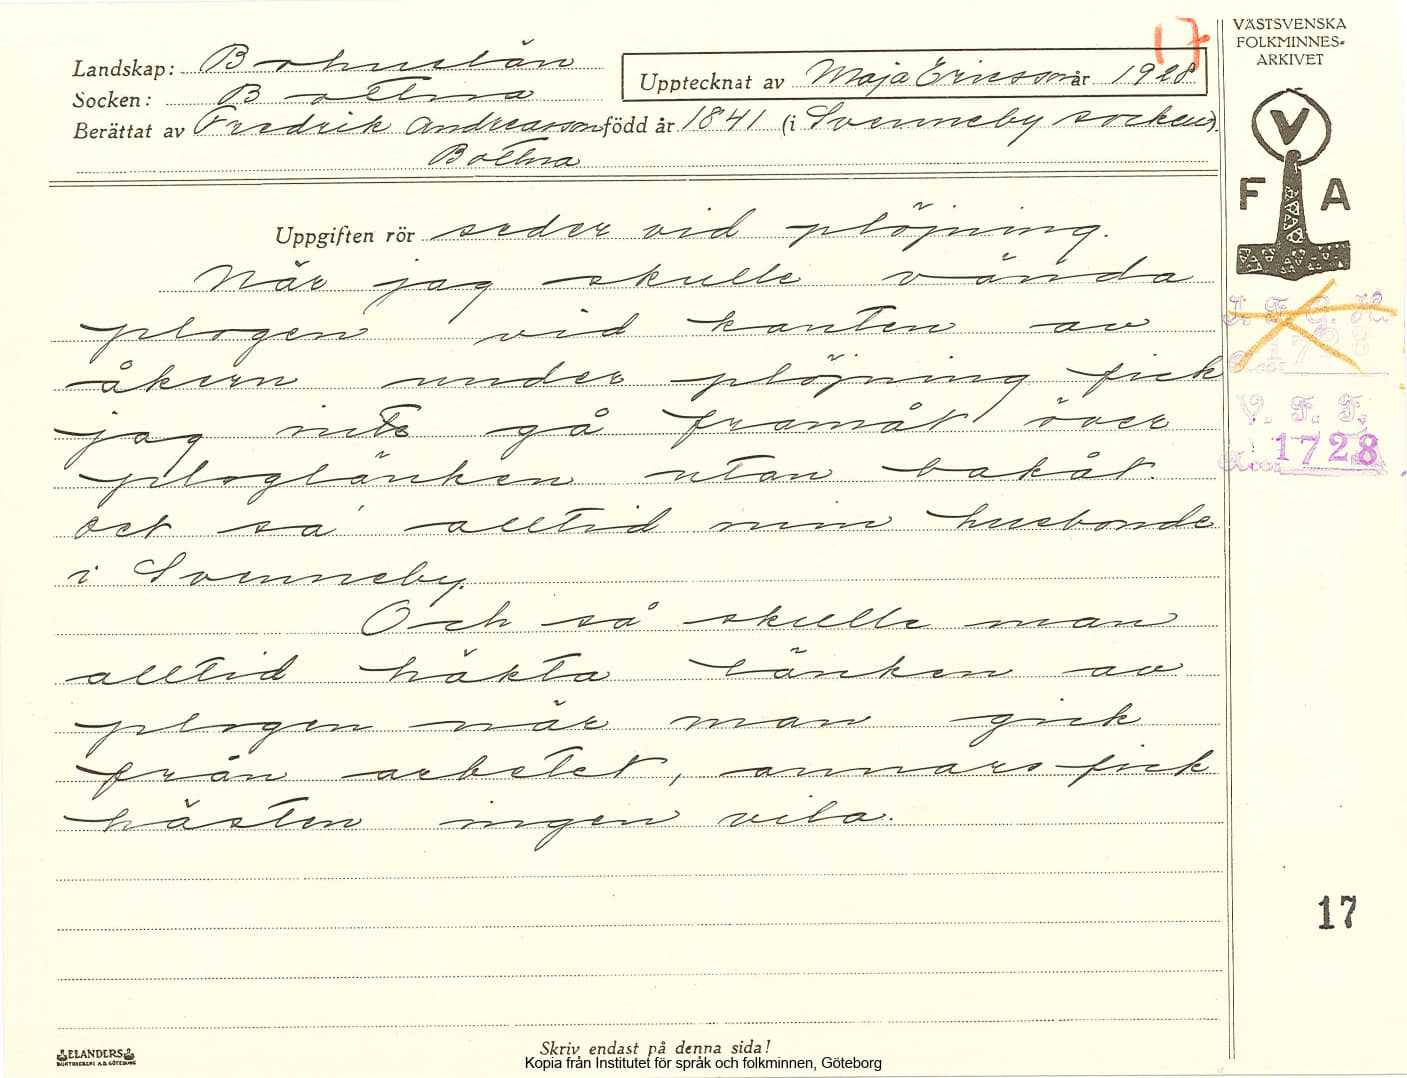 17
VÄSTSVENSKA
FOLKMINNES-
ARKIVET
Landskap: Bohuslän
Upptecknat av Maja Ericson år 1928
Socken: Bottna
Berättat av Fredrik Andreasson född år 1841 (i Svenneby socken).
Bottna
V
F A
Uppgiften rör seder vid plöjning.
När jag skulle vända
plogen vid kanten av
åkern under plöjning fick
jag inte gå framåt över
ploglänken utan bakåt.
Det sa' alltid min husbonde
i Svenneby.
Och så skulle man
alltid häkta länken av
plogen när man gick
från arbetet, annars fick
hästen ingen vila.
I. F. G. H.
1728
V. F. F.
Acc: 1728
17
ELANDERS
BOKTRYCKERI A.B. GÖTEBORG
Skriv endast på denna sida!
Kopia från Institutet för språk och folkminnen, Göteborg